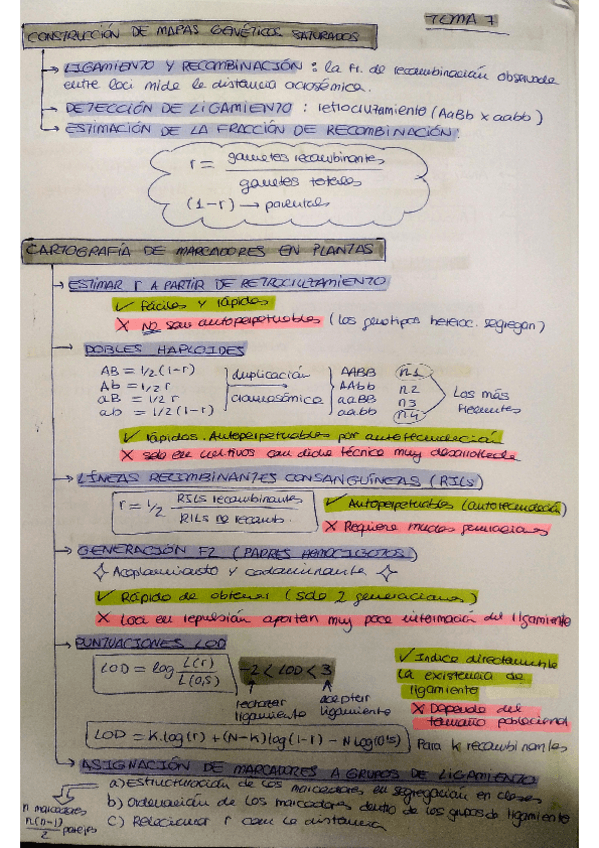 TEMA 7
CONSTRUCCIÓN DE MAPAS GENÉTICOS SATURADOS
→ LIGAMIENTO Y RECOMBINACIÓN : la Fr. de recombinación observada
entre loci mide la distancia cromosómica.
→ DETECCIÓN DE LIGAMIENTO : retrocruzamiento (AaBb x aabb)
→ ESTIMACIÓN DE LA FRACCIÓN DE RECOMBINACIÓN:
r = gametos recombinantes / gametos totales
(1-r) → parentales
CARTOGRAFÍA DE MARCADORES EN PLANTAS
→ ESTIMAR r A PARTIR DE RETROCRUZAMIENTO
✓ Fáciles y rápidos
X NO son autoperpetuables (los genotipos heteroc. segregan)
→ DOBLES HAPLOIDES
AB = 1/2 (1-r) AABB n1
Ab = 1/2 r duplicación AAbb n2 Las más
aB = 1/2 r cromosómica aaBB n3 frecuentes
ab = 1/2 (1-r) aabb n4
✓ rápidos. Autoperpetuables por autofecundación
X solo en cultivos con dicha técnica muy desarrollada
→ LÍNEAS RECOMBINANTES CONSANGUÍNEAS (RILs)
r = 1/2 RILs recombinantes / RILs no recomb.
✓ Autoperpetuables (autofecundación)
X Requiere muchas generaciones
→ GENERACIÓN F2 (PADRES HOMOCIGOTOS)
Acoplamiento y codominante
✓ Rápido de obtener (solo 2 generaciones)
X Loci en repulsión aportan muy poca información del ligamiento
→ PUNTUACIONES LOD
LOD = log L(r) / L(0,5)
-2 < LOD < 3
rechazar ligamiento
aceptar ligamiento
✓ Indica directamente
la existencia de
ligamiento
X Depende del
tamaño poblacional
LOD = K.log(r) + (N-K)log(1-r) - N log(0'5) Para k recombinantes
→ ASIGNACIÓN DE MARCADORES A GRUPOS DE LIGAMIENTO
a) Estructuración de los marcadores en segregación en clases
b) Ordenación de los marcadores dentro de los grupos de ligamiento
c) Relacionar r con la distancia
n marcadores
n(n-1) / 2 parejas